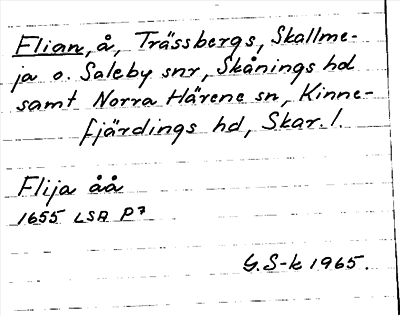 Flian, å, Trässbergs, Skallme-
ja o. Saleby snr, Skånings hd
samt Norra Härene sn, Kinne-
fjärdings hd, Skar. l.
Flija åå
1655 LSA P7
G.S-k 1965.